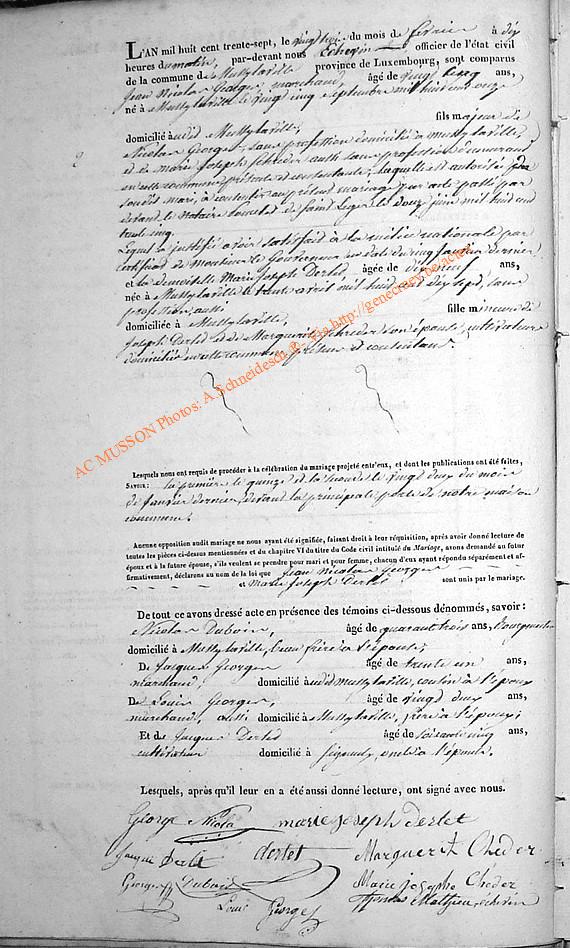 L'AN mil huit cent trente-sept, le vingt trois du mois de février à dix
heures du matin, par-devant nous Echevin officier de l'état civil
de la commune de Mussylaville province de Luxembourg, sont comparus
Jean Nicolas Georges, marchand, âgé de vingt cinq ans,
né à Mussylaville le vingt cinq septembre mil huit cent onze
fils majeur de
domicilié audit Mussylaville,
Nicolas Georges, sans profession domicilié à Mussylaville,
et de Marie Joseph Schreder aussi sans profession demeurant
en cette commune présente et consentante, laquelle est autorisée par
son dit mari, à consentir au présent mariage par acte passé par
devant le notaire de Saint Leger le douze juin mil huit cent
trente cinq.
Lequel a justifié avoir satisfait à la milice nationale par
certificat de Monsieur le Gouverneur en date du cinq janvier dernier
et la demoiselle Marie Joseph Derlet, âgée de dix neuf ans,
née à Mussylaville le trente avril mil huit cent dix sept, sans
profession, aussi
fille mineure de
domiciliée à Mussylaville,
Joseph Derlet et de Marguerite Schreder son épouse, cultivateurs
domiciliés en cette commune, présens et consentans.
AC MUSSON Photos: A.Schneidesch & - via http://genecracy.be/actes
Lesquels nous ont requis de procéder à la célébration du mariage projeté entr'eux, et dont les publications ont été faites,
SAVOIR: la première le quinze et la seconde le vingt deux du mois
de Janvier dernier, devant la principale porte de notre maison
commune.
Aucune opposition audit mariage ne nous ayant été signifiée, faisant droit à leur réquisition, après avoir donné lecture de
toutes les pièces ci-dessus mentionnées et du chapitre VI du titre du Code civil intitulé du Mariage, avons demandé au futur
époux et à la future épouse, s'ils veulent se prendre pour mari et pour femme, chacun d'eux ayant répondu séparément et af-
firmativement, déclarons au nom de la loi que Jean Nicolas Georges
et Marie Joseph Derlet sont unis par le mariage.
De tout ce avons dressé acte en présence des témoins ci-dessous dénommés, savoir:
Nicolas Dubois, âgé de quarante trois ans,
domicilié à Mussylaville, beau frère à l'épouse;
De Jacques Georges âgé de trente un ans,
marchand, domicilié audit Mussylaville, cousin à l'époux
De Louis Georges, âgé de vingt deux ans,
marchand, aussi domicilié à Mussylaville, frère à l'époux;
Et de Jacques Derlet âgé de soixante cinq ans,
cultivateur domicilié à Signeulx, oncle à l'épouse.
Lesquels, après qu'il leur en a été aussi donné lecture, ont signé avec nous.
George Nicola marie joseph derlet
Jacque Derlet derlet Marguerit Cheder
Georges Dubois Marie josephe Cheder
Loui Georges Mathieu, échevin